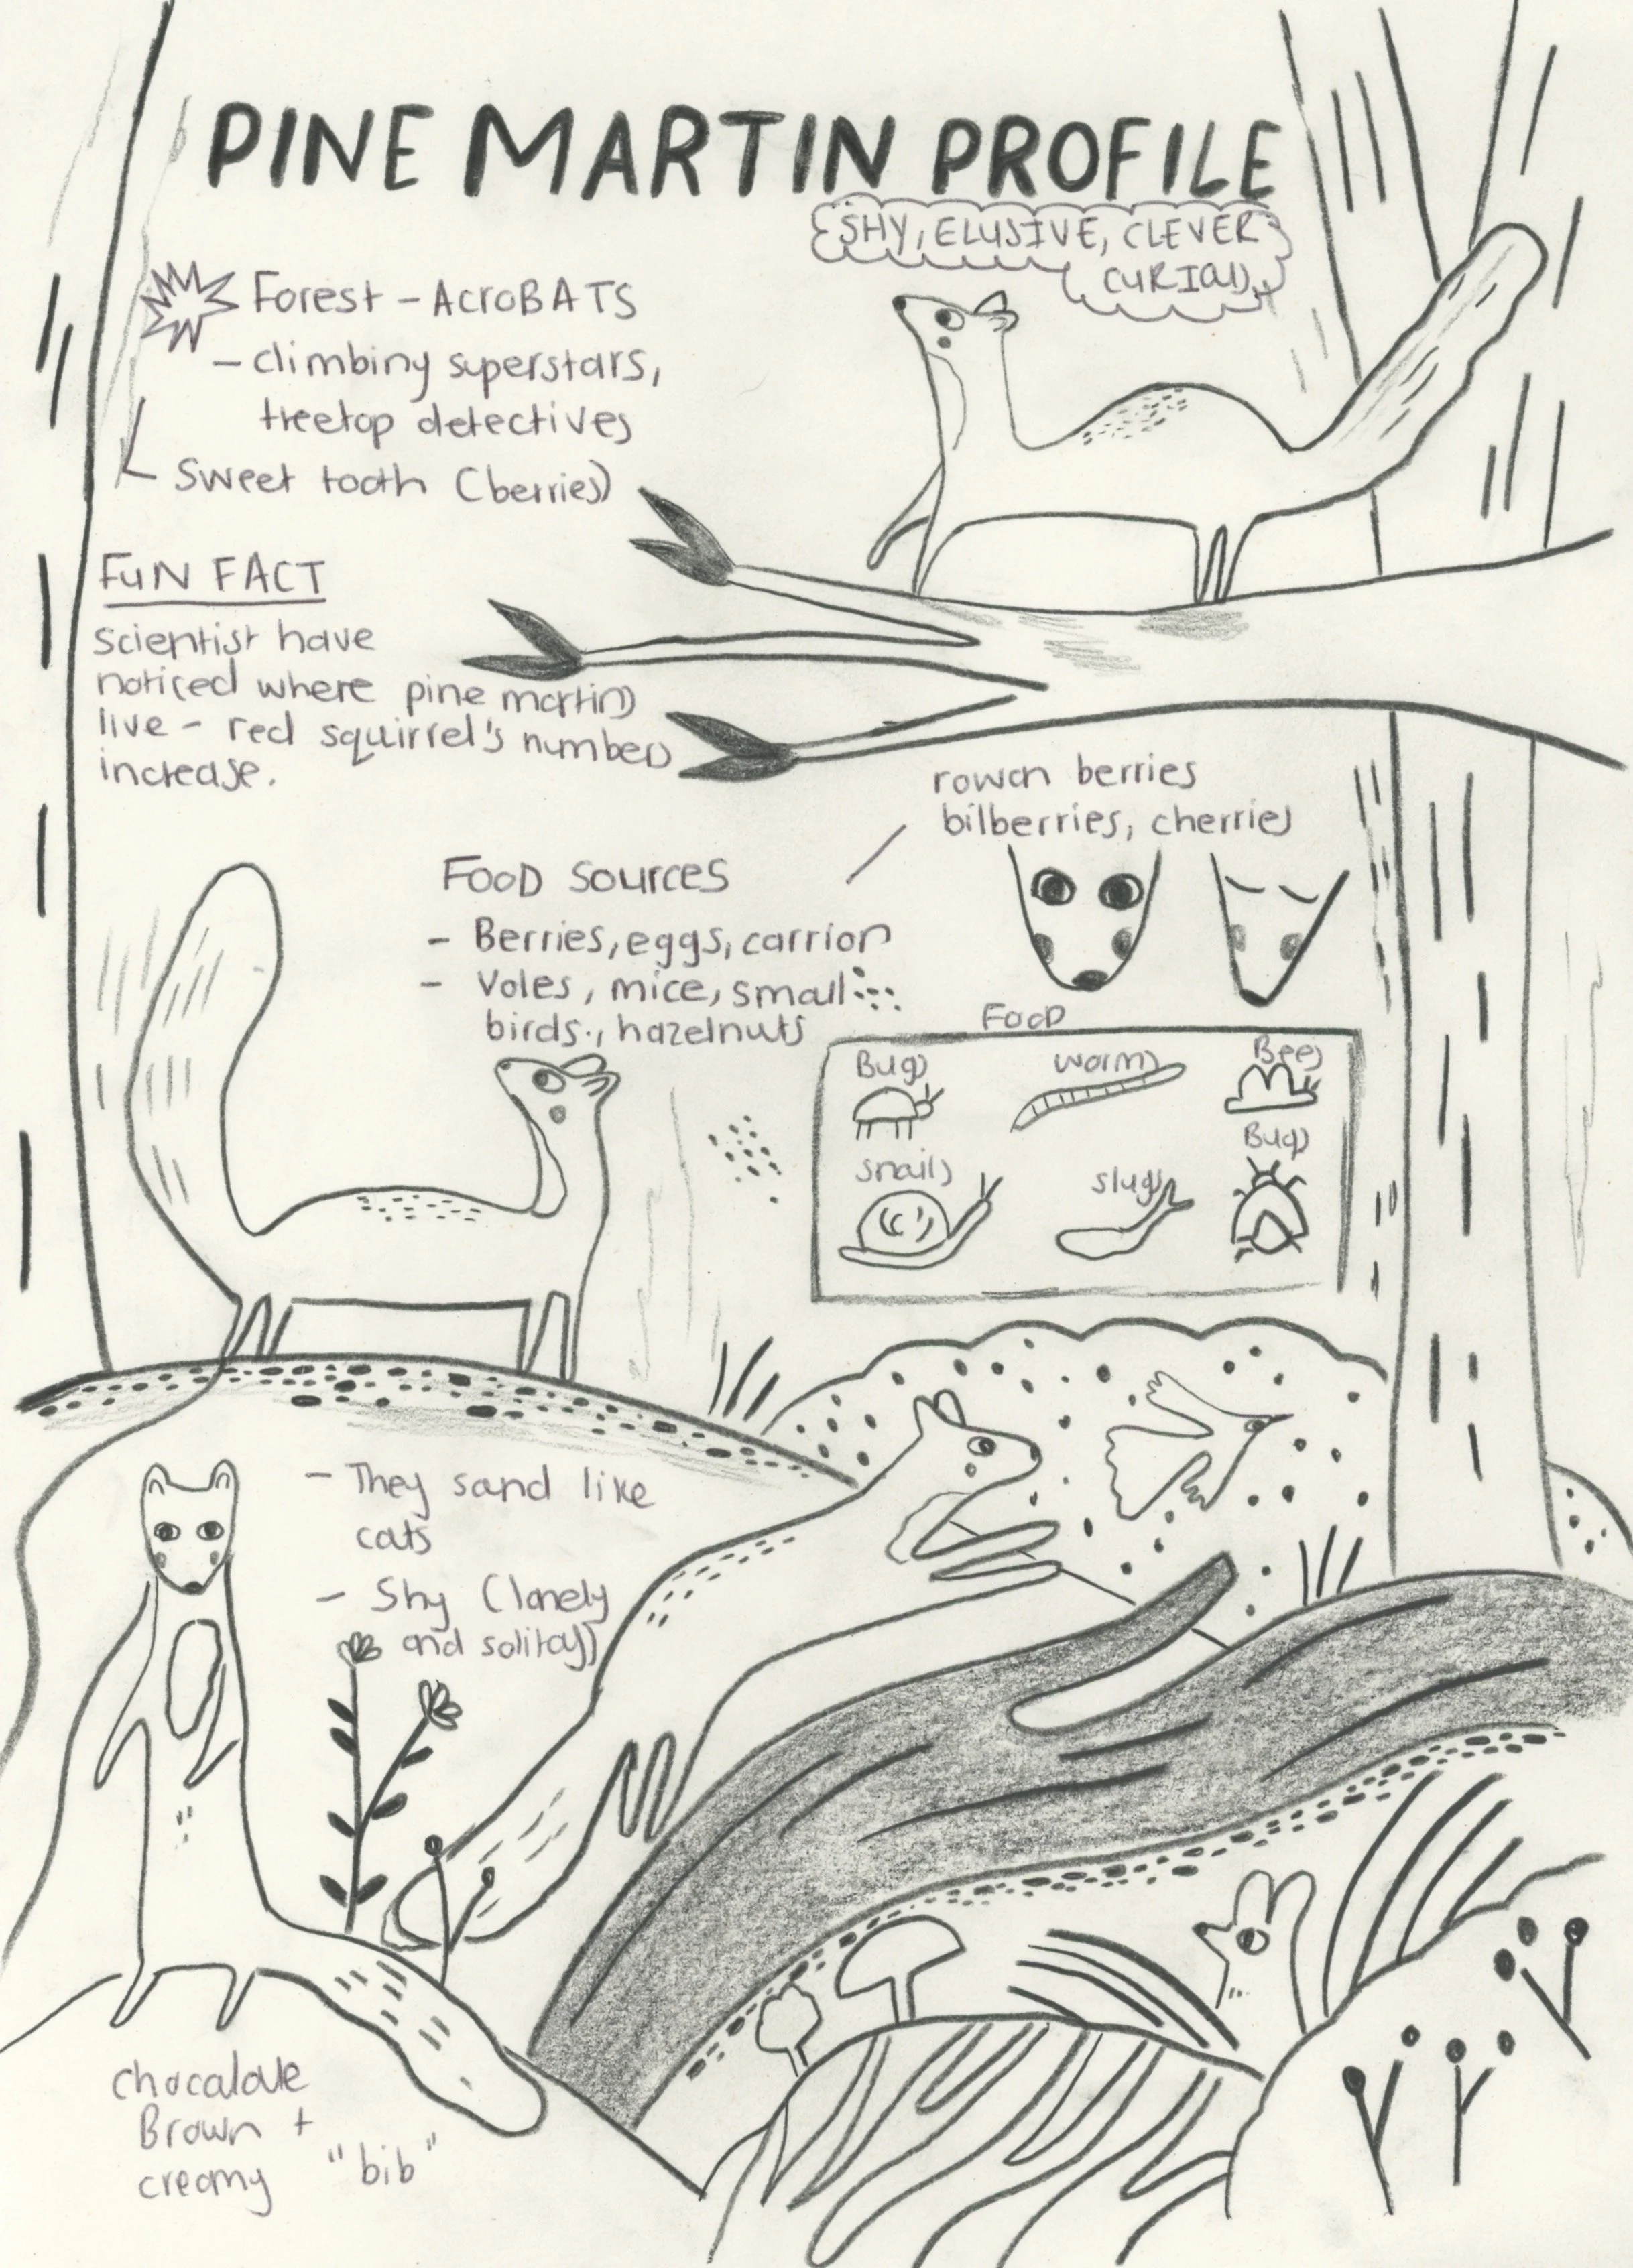 PINE MARTIN PROFILE
SHY, ELUSIVE, CLEVER
CURIOUS
Forest - AcroBATS
- climbing superstars,
treetop detectives
Sweet tooth (berries)
FUN FACT
scientist have
noticed where pine martins
live - red squirrel's numbers
increase.
rowan berries
bilberries, cherries
FOOD SOURCES
- Berries, eggs, carrion
- Voles, mice, small
birds., hazelnuts
Food
Bugs
worms
Bees
Bugs
snails
slugs
- They sand like
cats
- Shy (lonely
and solitary)
chocalate
Brown +
creamy "bib"